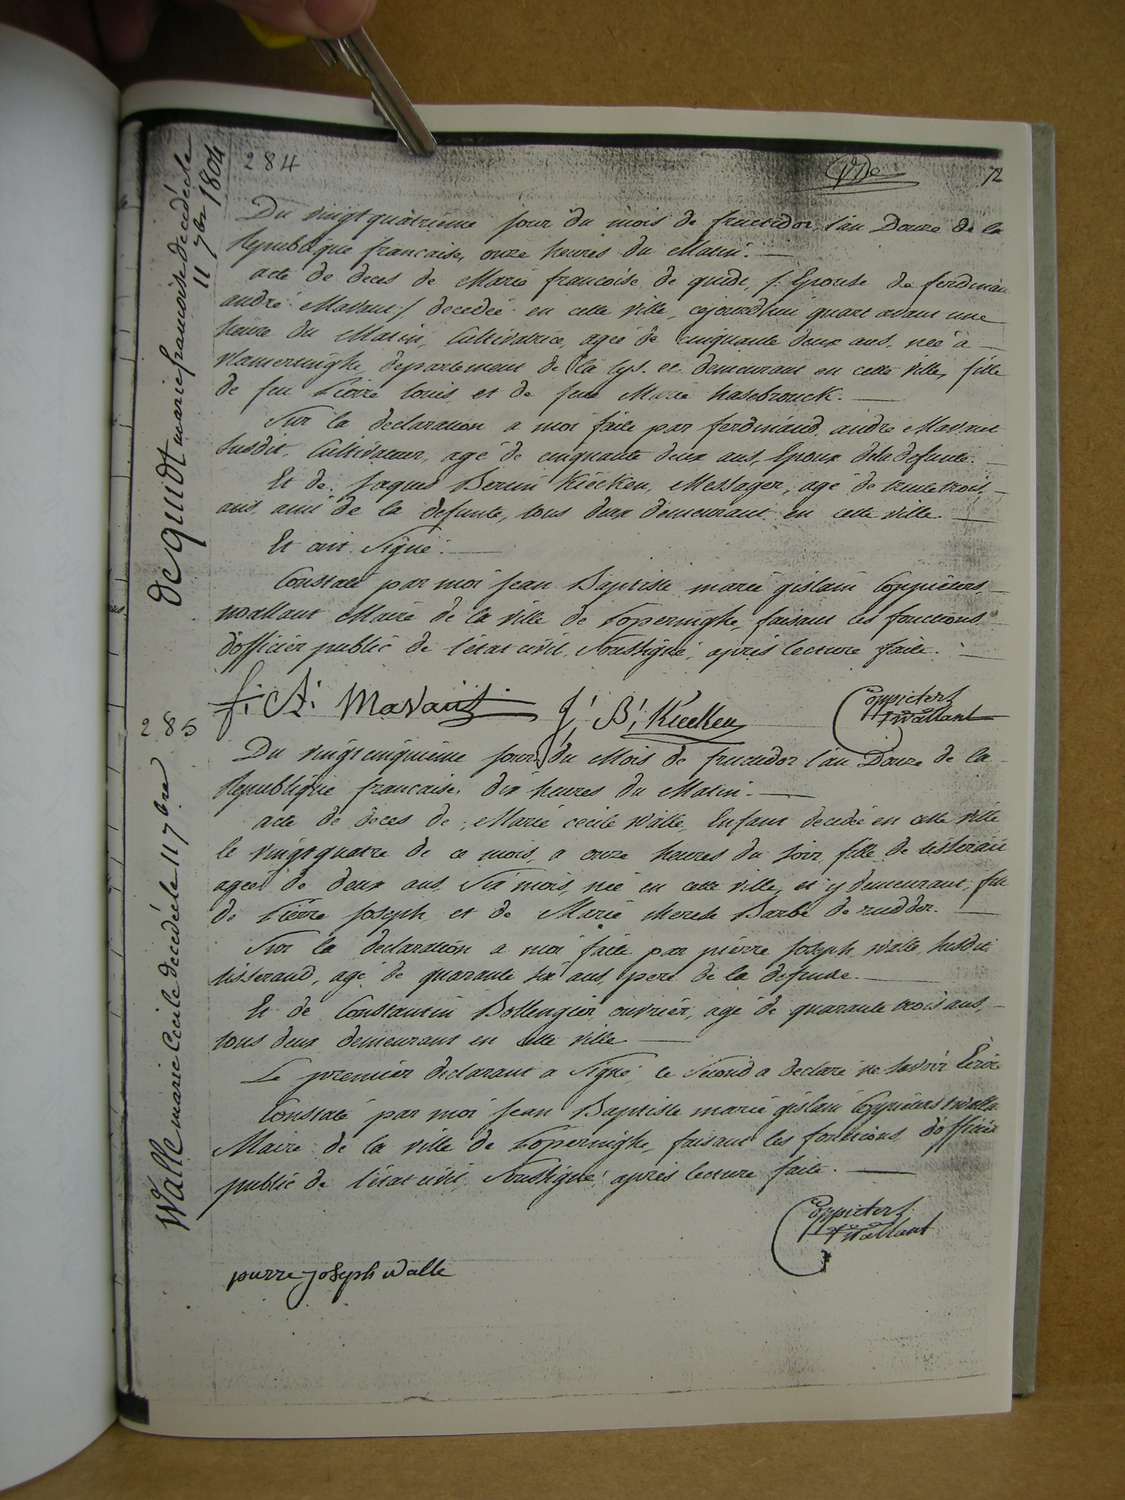 284
72
de quidt marie francoise decedée le
11 7bre 1804
Du vingtquatrieme jour du mois de fructidor, l'an Douze de la
Republique francaise, onze heures du Matin.
acte de deces de Marie francoise de quidt, /: Epouse de ferdinan
andré Mavaut :/ decedée en cette ville, cejourdhui quart avant une
heure du Matin, Cultivatrice, agée de cinquante deux ans, née à
vlamertinghe, departement de la Lys, et demeurant en cette ville, fille
de feu Pierre Louis, et de feue Marie hasebrouck.
Sur la declaration a moi faite par ferdinand andré Mavaut
Susdit, Cultivateur, agé de cinquante deux ans, Epoux dela defunte.
Et de Jaques Benoit Kiecken, Messager, agé de trente trois
ans, ami de la defunte, tous deux demeurant en cette ville.
Et ont Signé.
Constaté par moi Jean Baptiste marie gislain Coppieters
wallant Maire de la ville de Poperinghe, faisant les fonctions
d'officier public de l'état civil, Soussigné, après lecture faite.
f: A: Mavaut
J: B: Kiecken
Coppieters
twallant
285
Walle marie Cecile decedée le 11 7bre
Du vingtcinquieme jour du Mois de fructidor l'an Douze de la
Republique francaise, dix heures du Matin.
acte de deces de Marie Cecile Walle, Enfant decedée en cette ville
le vingtquatre de ce mois, a onze heures du soir, fille de tisseran
agée de deux ans Six mois, née en cette ville, et y demeurant, fille
de Pierre Joseph et de Marie therese Barbe de rudder.
Sur la declaration a moi faite par pierre Joseph walle, susdit
tisserand, agé de quarante six ans, pere de la defunte.
Et de Constantin Bollengier ouvrier, agé de quarante trois ans,
tous deux demeurant en cette ville
Le premier declarant a Signé, le Second a declaré ne savoir Ecrire
Constaté par moi Jean Baptiste marie gislain Coppieters twalla
Maire de la ville de Poperinghe, faisant les fonctions d'officier
public de l'état civil, Soussigné, après lecture faite.
Coppieters
twallant
pierre joseph walle